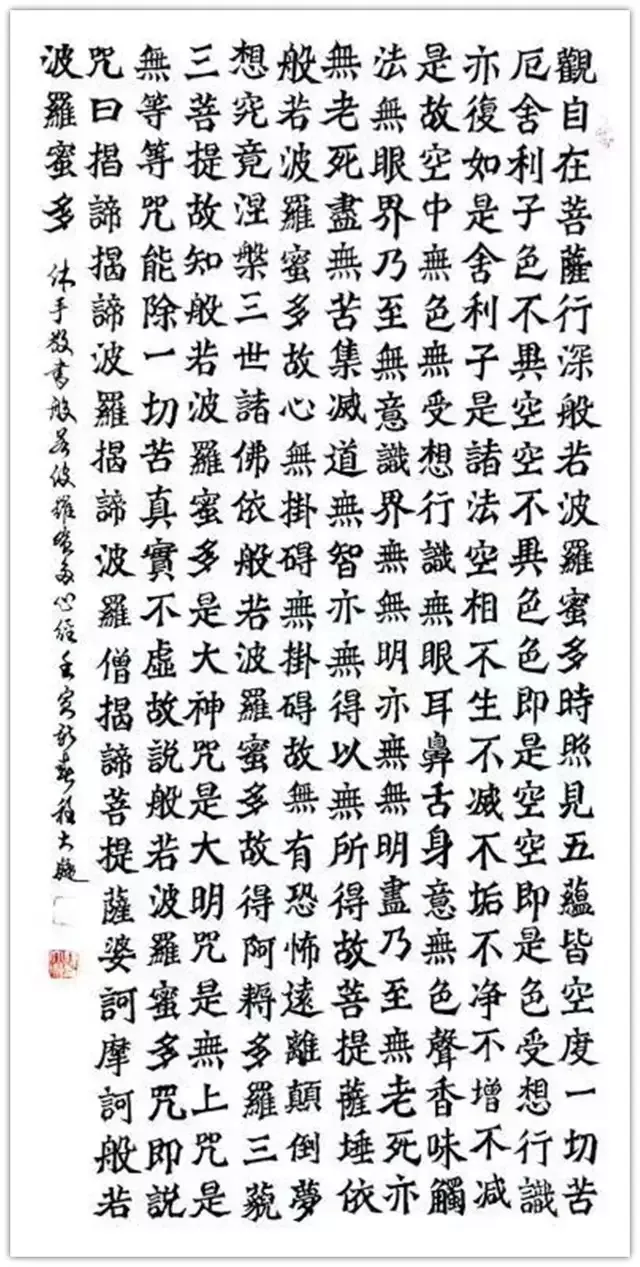 觀自在菩薩行深般若波羅蜜多時照見五蘊皆空度一切苦
厄舍利子色不異空空不異色色即是空空即是色受想行識
亦復如是舍利子是諸法空相不生不减不垢不净不增不减
是故空中無色無受想行識無眼耳鼻舌身意無色聲香味觸
法無眼界乃至無意識界無無明亦無無明盡乃至無老死亦
無老死盡無苦集滅道無智亦無得以無所得故菩提薩埵依
般若波羅蜜多故心無掛碍無掛碍故無有恐怖遠離顛倒夢
想究竟涅槃三世諸佛依般若波羅蜜多故得阿耨多羅三藐
三菩提故知般若波羅蜜多是大神咒是大明咒是無上咒是
無等等咒能除一切苦真實不虛故說般若波羅蜜多咒即說
咒曰揭諦揭諦波羅揭諦波羅僧揭諦菩提薩婆訶摩訶般若
波羅蜜多
沐手敬書般若波羅蜜多心經壬寅新春程大